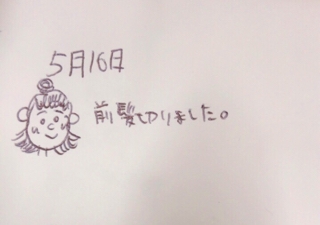 5月16日
前髪切りました。